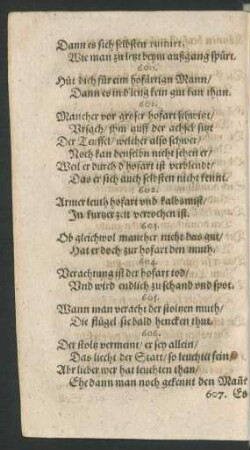 Dann es sich selbsten ruinirt,
Wie man zu letzt beym außgang spürt.
600.
Hüt dich für eim hofärtigen Mann/
Dann es in d leng kein gut han than.
601.
Mancher vor grosser hofart schwitzt/
Vrsach/ ihm auff der achsel sitzt
Der Teuffel/ welcher also schwer/
Noch kan denselbn nicht sehen er/
Weil er durch d'hofart ist verblendt/
Das er sich auch selbsten nicht kennt.
602.
Armer leuth hofart vnd kalbsmist/
In kurtzer zeit verrochen ist.
603.
Ob gleichwol mancher nicht das gut/
Hat er doch zur hofart den muth.
604.
Verachtung ist der hofart tod/
Vnd wird endlich zu schand vnd spot.
605.
Wann man veracht der stoltzen muth/
Die flügel sie bald hencken thut.
606.
Der stoltz vermeint/ er sey allein/
Das liecht der Statt/ so leuchtet fein/
Abr lieber wer hat leuchten than/
Ehe dann man noch gekennt den Mañ?
607. Es